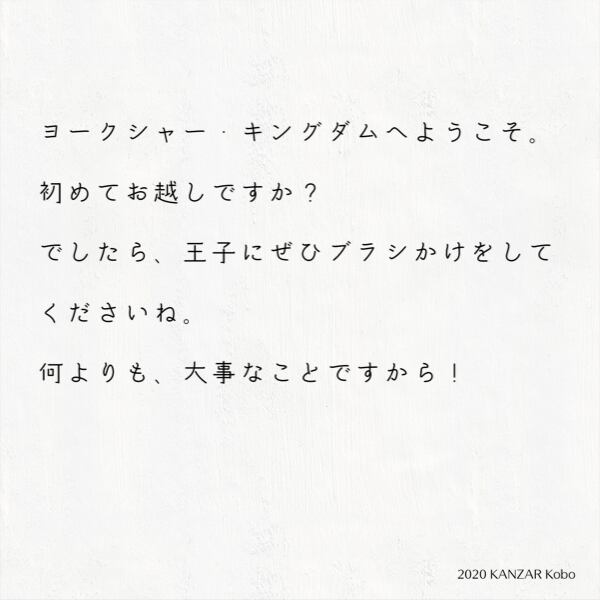 ヨークシャー・キングダムへようこそ。
初めてお越しですか？
でしたら、王子にぜひブラシかけをして
くださいね。
何よりも、大事なことですから！
2020 KANZAR Kobo